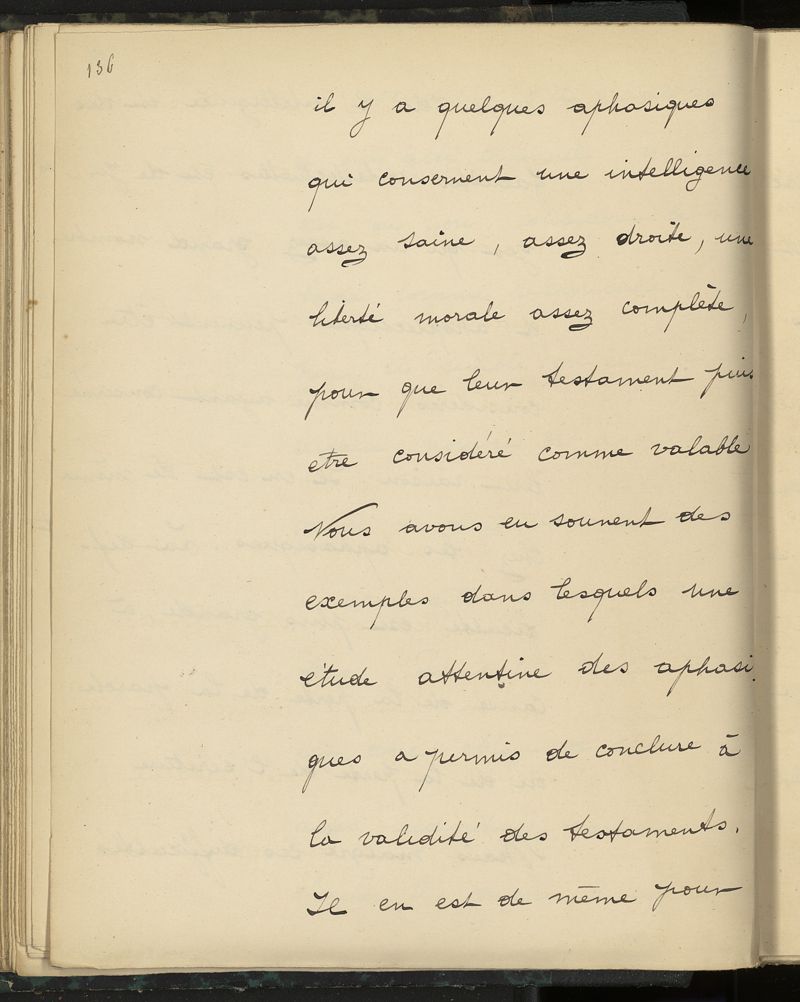 136
il y a quelques aphasiques
qui conservent une intelligence
assez saine, assez droite, une
liberté morale assez complète,
pour que leur testament puis
etre considéré comme valable
Nous avons eu souvent des
exemples dans lesquels une
étude attentive des aphasi
ques a permis de conclure à
la validité des testaments.
Il en est de même pour